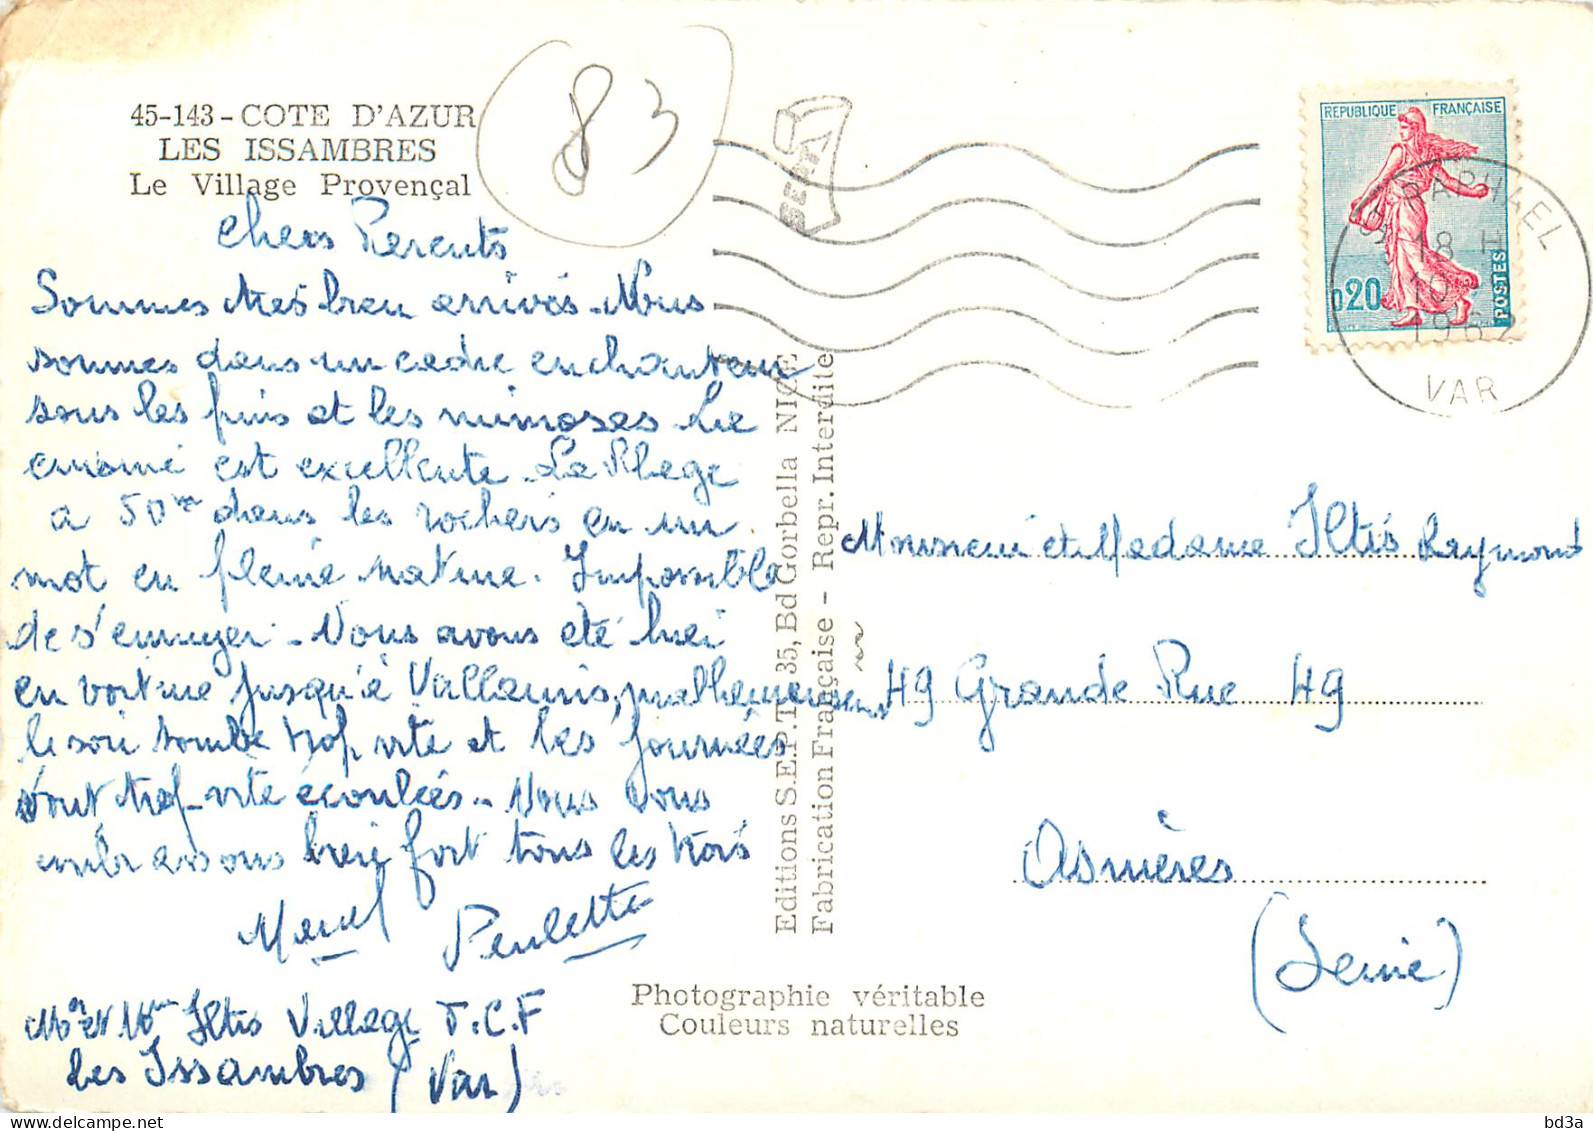 45-143 - COTE D'AZUR
LES ISSAMBRES
Le Village Provençal
83
Chers Parents
Sommes très bien arrivés. Nous
sommes dans un cadre enchanteur
sous les pins et les mimosas. La
cuisine est excellente. La Plage
a 50m dans les rochers en un
mot en pleine nature. Impossible
de s'ennuyer. Nous avons été hier
en voiture jusqu'à Vallauris, malheureusement
le soir tombe trop vite et les journées
sont trop vite écoulées. Nous vous
embrassons bien fort tous les trois
Marcel Paulette
Mr et Mme Iltis Village T.C.F
Les Issambres (Var)
Editions S.E.P.T. 35, Bd Gorbella NICE
Fabrication Française - Repr. Interdite
Photographie véritable
Couleurs naturelles
REPUBLIQUE FRANÇAISE
0,20
POSTES
ST RAPHAEL
18 H
1962
VAR
Monsieur et Madame Iltis Raymond
49 Grande Rue 49
Asnières
(Seine)
delcampe.net
bd3a